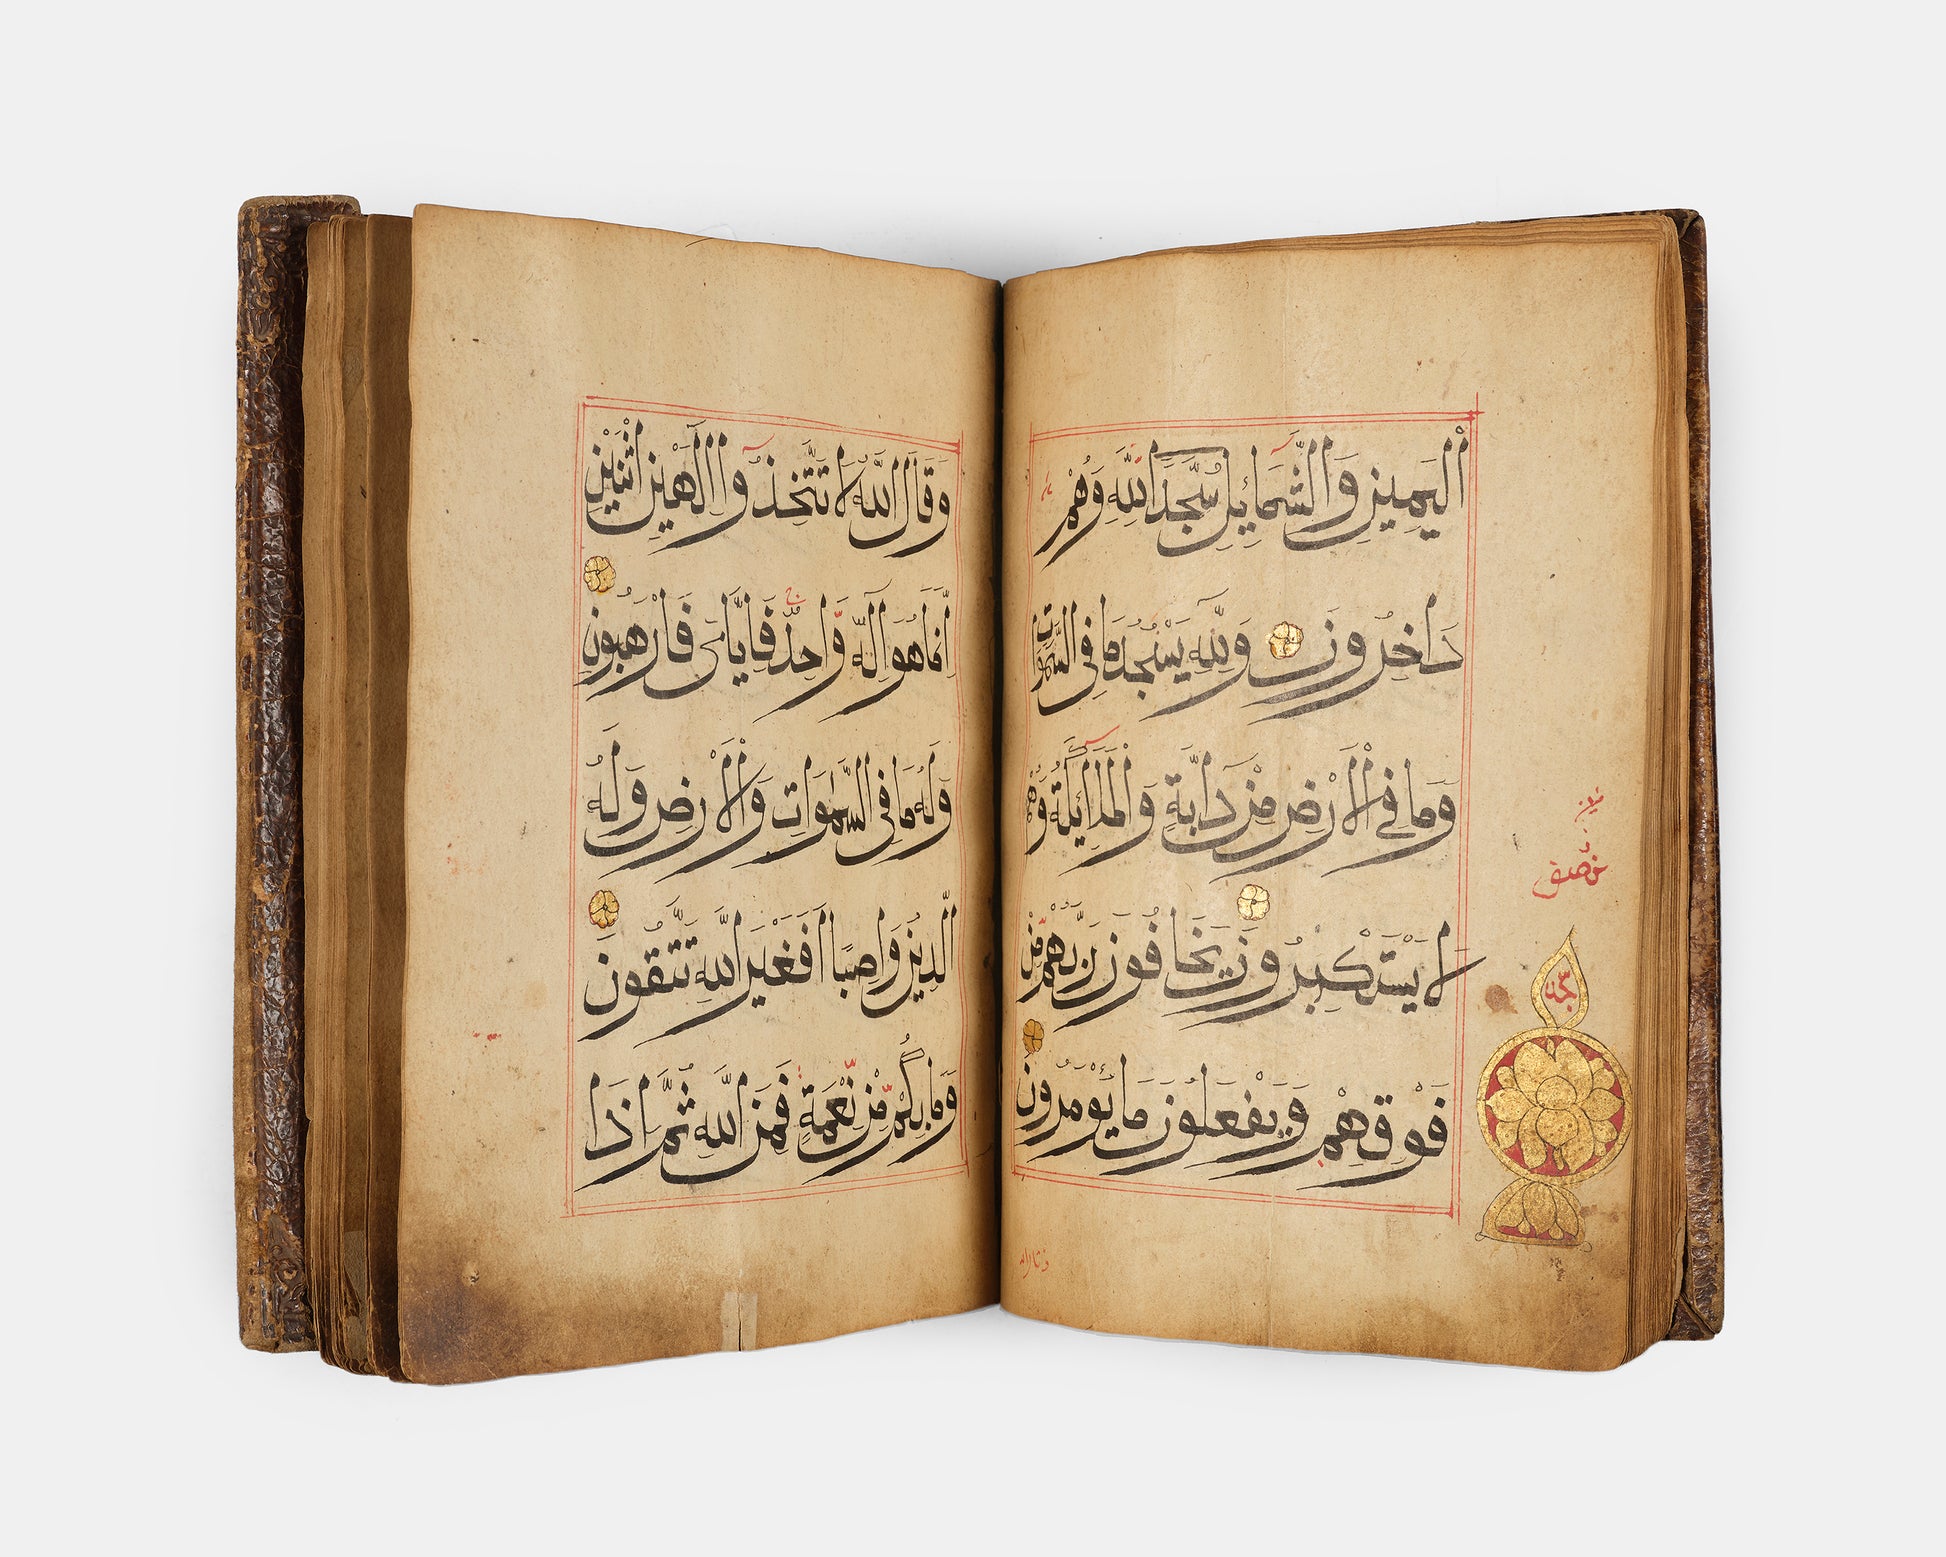 اَلْيَمِيْنِ وَالشَّمَآئِلِ سُجَّدًا لِلّٰهِ وَهُمْ
دَاخِرُوْنَ وَلِلّٰهِ يَسْجُدُ مَا فِي السَّمٰوَاتِ
وَمَا فِي الْاَرْضِ مِنْ دَابَّةٍ وَالْمَلَآئِكَةُ وَهُمْ
لَا يَسْتَكْبِرُوْنَ يَخَافُوْنَ رَبَّهُمْ مِنْ
فَوْقِهِمْ وَيَفْعَلُوْنَ مَا يُؤْمَرُوْنَ
سجدة
وَقَالَ اللّٰهُ لَا تَتَّخِذُوْا اِلٰهَيْنِ اثْنَيْنِ
اِنَّمَا هُوَ اِلٰهٌ وَّاحِدٌ فَاِيَّايَ فَارْهَبُوْنِ
وَلَهُ مَا فِي السَّمٰوَاتِ وَالْاَرْضِ وَلَهُ
الدِّيْنُ وَاصِبًا اَفَغَيْرَ اللّٰهِ تَتَّقُوْنَ
وَمَا بِكُمْ مِّنْ نِّعْمَةٍ فَمِنَ اللّٰهِ ثُمَّ اِذَا